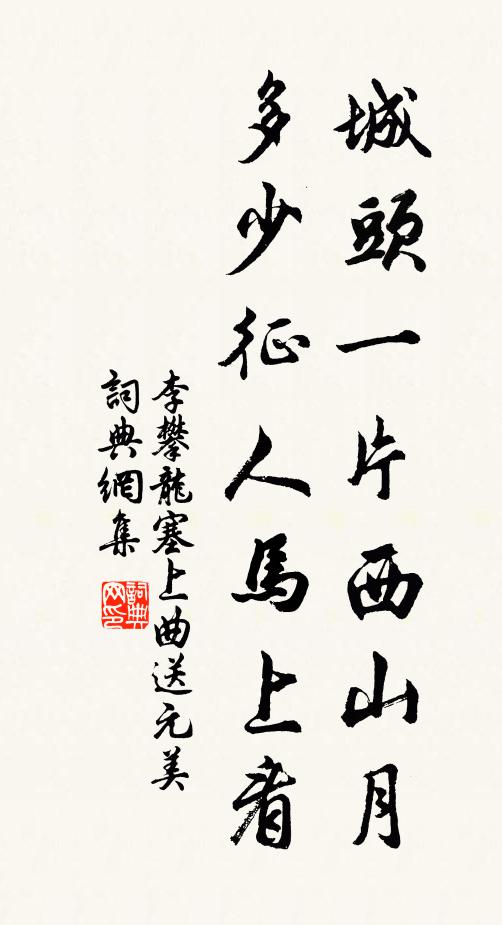 城頭一片西山月
多少征人馬上看
李攀龍塞上曲送元美
詞典網集
詞典网印